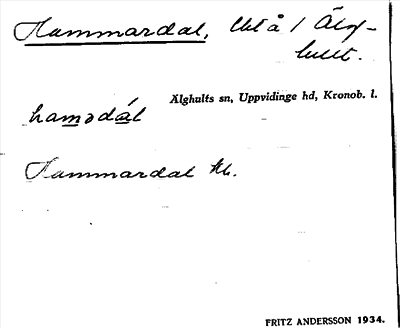 Hammardal, Ut å / Älg-
hult.
Älghults sn, Uppvidinge hd, Kronob. l.
hamədál
Hammardal
FRITZ ANDERSSON 1934.